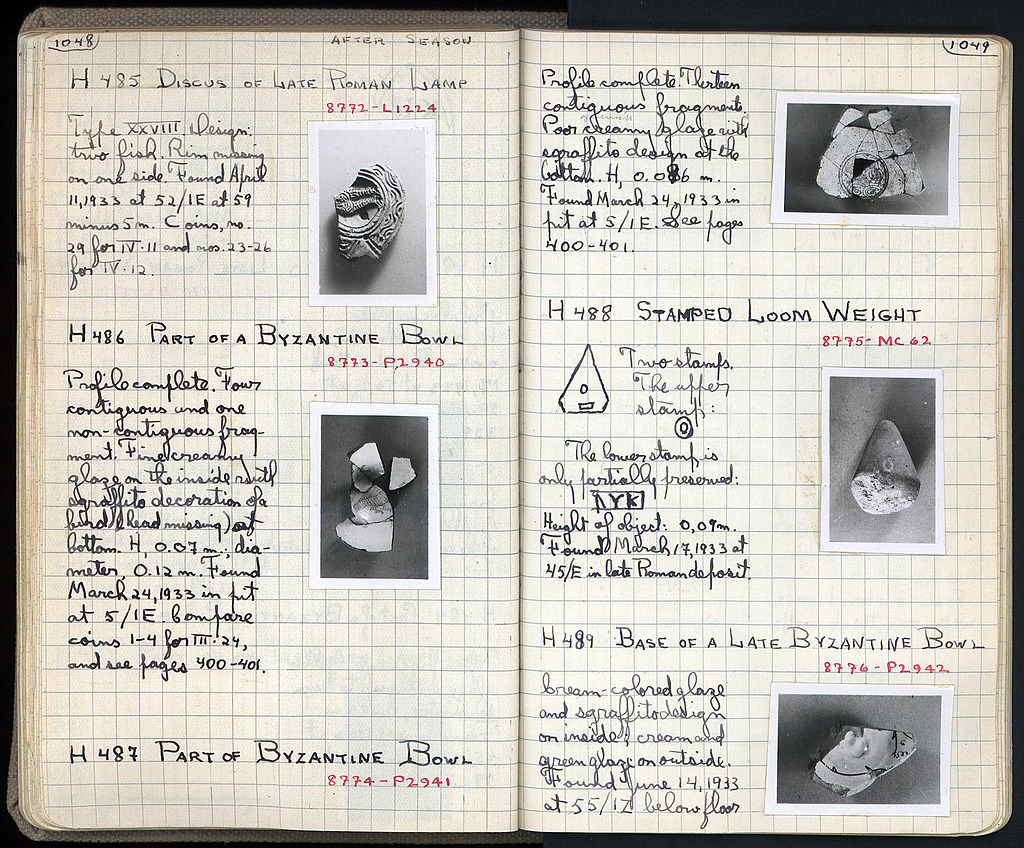 1048
AFTER SEASON
H 485 DISCUS OF LATE ROMAN LAMP
8772-L1224
Type XXVIII Design:
two fish. Rim missing
on one side. Found April
11,1933 at 52/IE at 59
minus 5 m. Coins, no.
29 for IV·11 and nos. 23-26
for IV·12.
H 486 PART OF A BYZANTINE BOWL
8773-P2940
Profile complete. Four
contiguous and one
non-contiguous frag-
ment. Fine creamy
glaze on the inside with
sgraffito decoration of a
bird (head missing) at
bottom. H, 0.07 m.; dia-
meter, 0.12 m. Found
March 24, 1933 in pit
at 5/IE. Compare
coins 1-4 for III·24,
and see pages 400-401.
H 487 PART OF BYZANTINE BOWL
8774-P2941
1049
Profile complete. Thirteen
contiguous fragments.
Poor creamy glaze with
sgraffito design at the
bottom. H, 0.086 m.
Found March 24, 1933 in
pit at 5/IE. See pages
400-401.
H 488 STAMPED LOOM WEIGHT
8775-MC 62
Two stamps.
The upper
stamp:
The lower stamp is
only partially preserved:
ΛΥΚ
Height of object: 0,09m.
Found March 17, 1933 at
45/E in late Roman deposit.
H 489 BASE OF A LATE BYZANTINE BOWL
8776-P2942
Cream-colored glaze
and sgraffito design
on inside; cream and
green glaze on outside.
Found June 14, 1933
at 55/IZ below floor